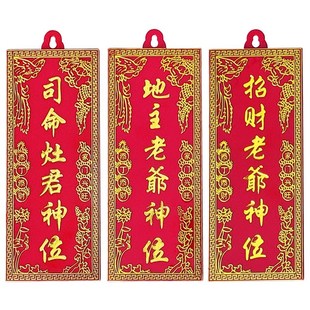 司命灶君神位
地主老爺神位
招财老爺神位